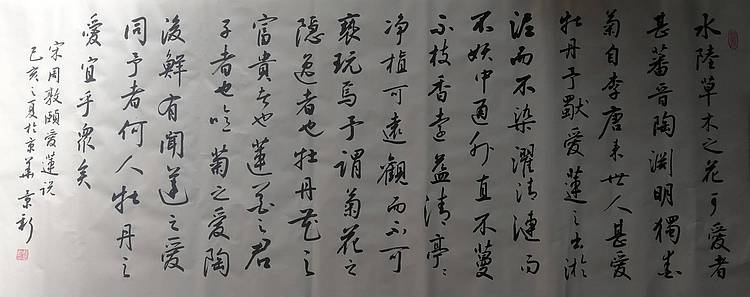 水陸草木之花可愛者
甚蕃晉陶淵明獨愛
菊自李唐来世人甚愛
牡丹予獨愛蓮之出淤
泥而不染濯清漣而
不妖中通外直不蔓
不枝香遠益清亭〻
净植可遠觀而不可
褻玩焉予謂菊花之
隐逸者也牡丹花之
富貴者也蓮花之君
子者也噫菊之愛陶
後鮮有聞蓮之愛
同予者何人牡丹之
愛宜乎眾矣
宋周敦頤愛蓮説
己亥之夏於京華京新